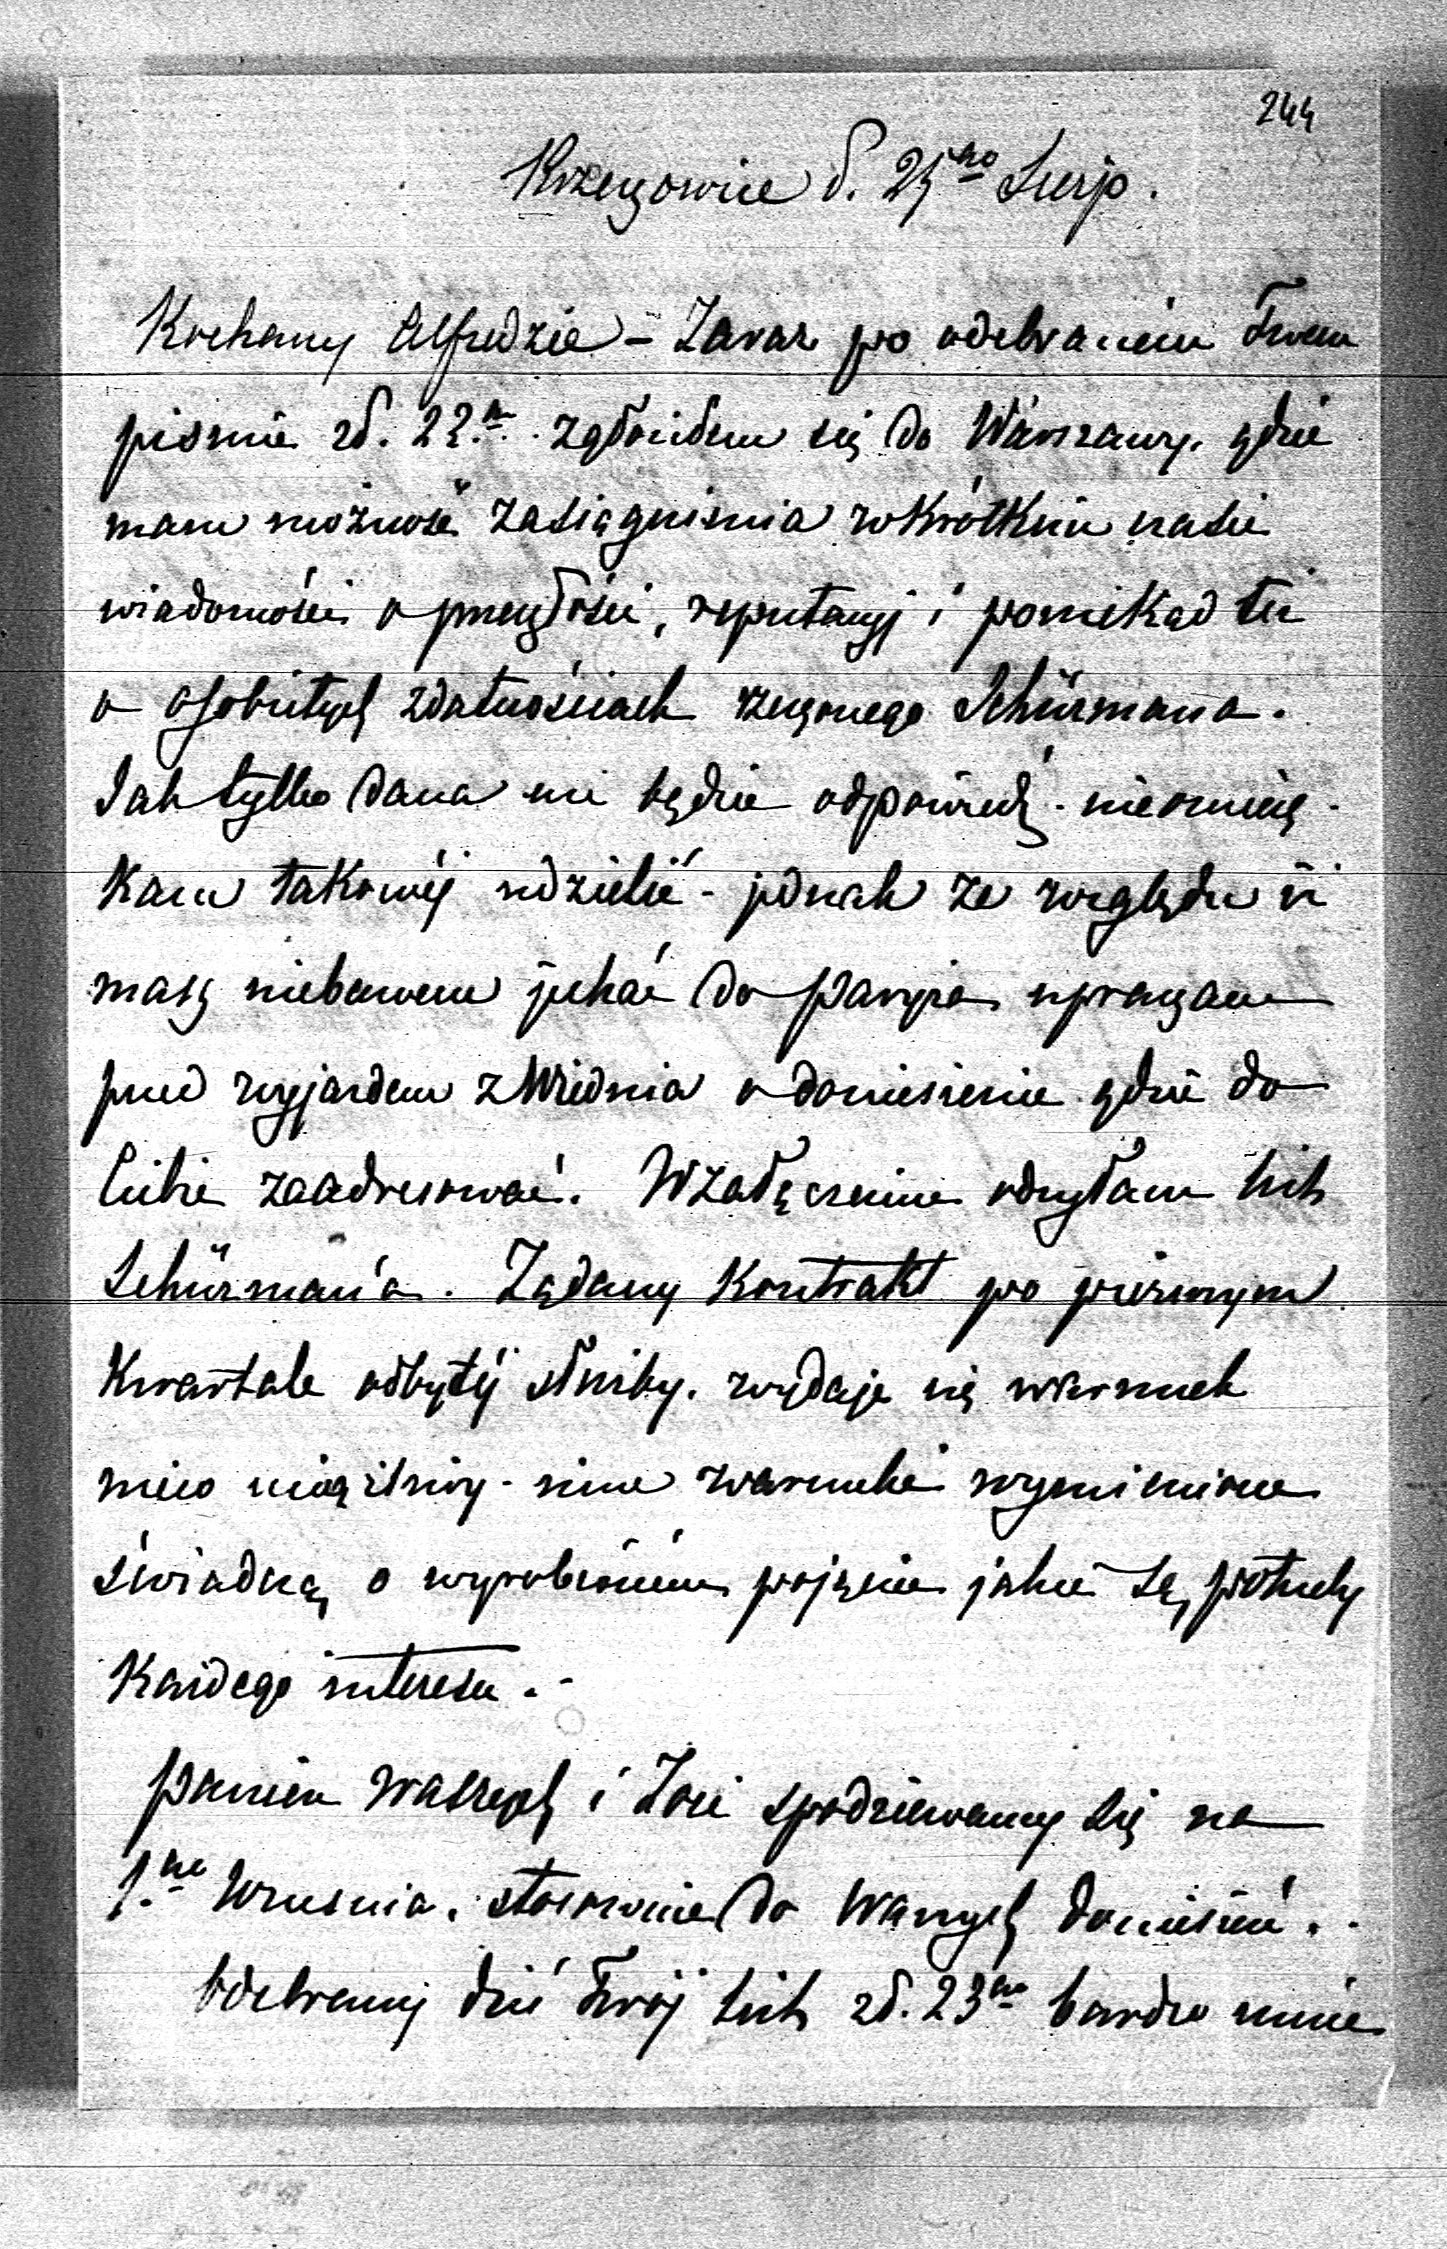 244
Krzeszowice d. 25go Sierp.
Kochany Alfredzie – Zaraz po odebraniem Twem
piśmie zd. 22go zgłosiłem się do Warszawy, gdzie
mam możność zasiągnienia w krótkim czasie
wiadomości o przeszłości, reputacyj i poniekąd też
o osobistych zdatnościach rzeczonego Schürmana.
Jak tylko dana mi będzie odpowiedź – nieomieszkam
takowéj udzielić – jednak ze względu iż
masz niebawem jechać do Paryża upraszam
przed wyjazdem z Wiednia o doniesienie gdzie do
Ciebie zaadresować. W załączeniu odsyłam list
Schürman'a. Żądany Kontrakt po pierwszym
Kwartale odbytéj służby, wydaje się warunek
nieco uciążliwy – inne warunki wymienione
świadczą o wyrobioném pojęciu jakie są potrzeby
Każdego interesu. –
Panien Waszych i Zosi spodziewamy się na
1go Wrzesnia, stosownie do Waszych doniesień. –
Odebrany dziś Twój list zd. 23go bardzo mnie